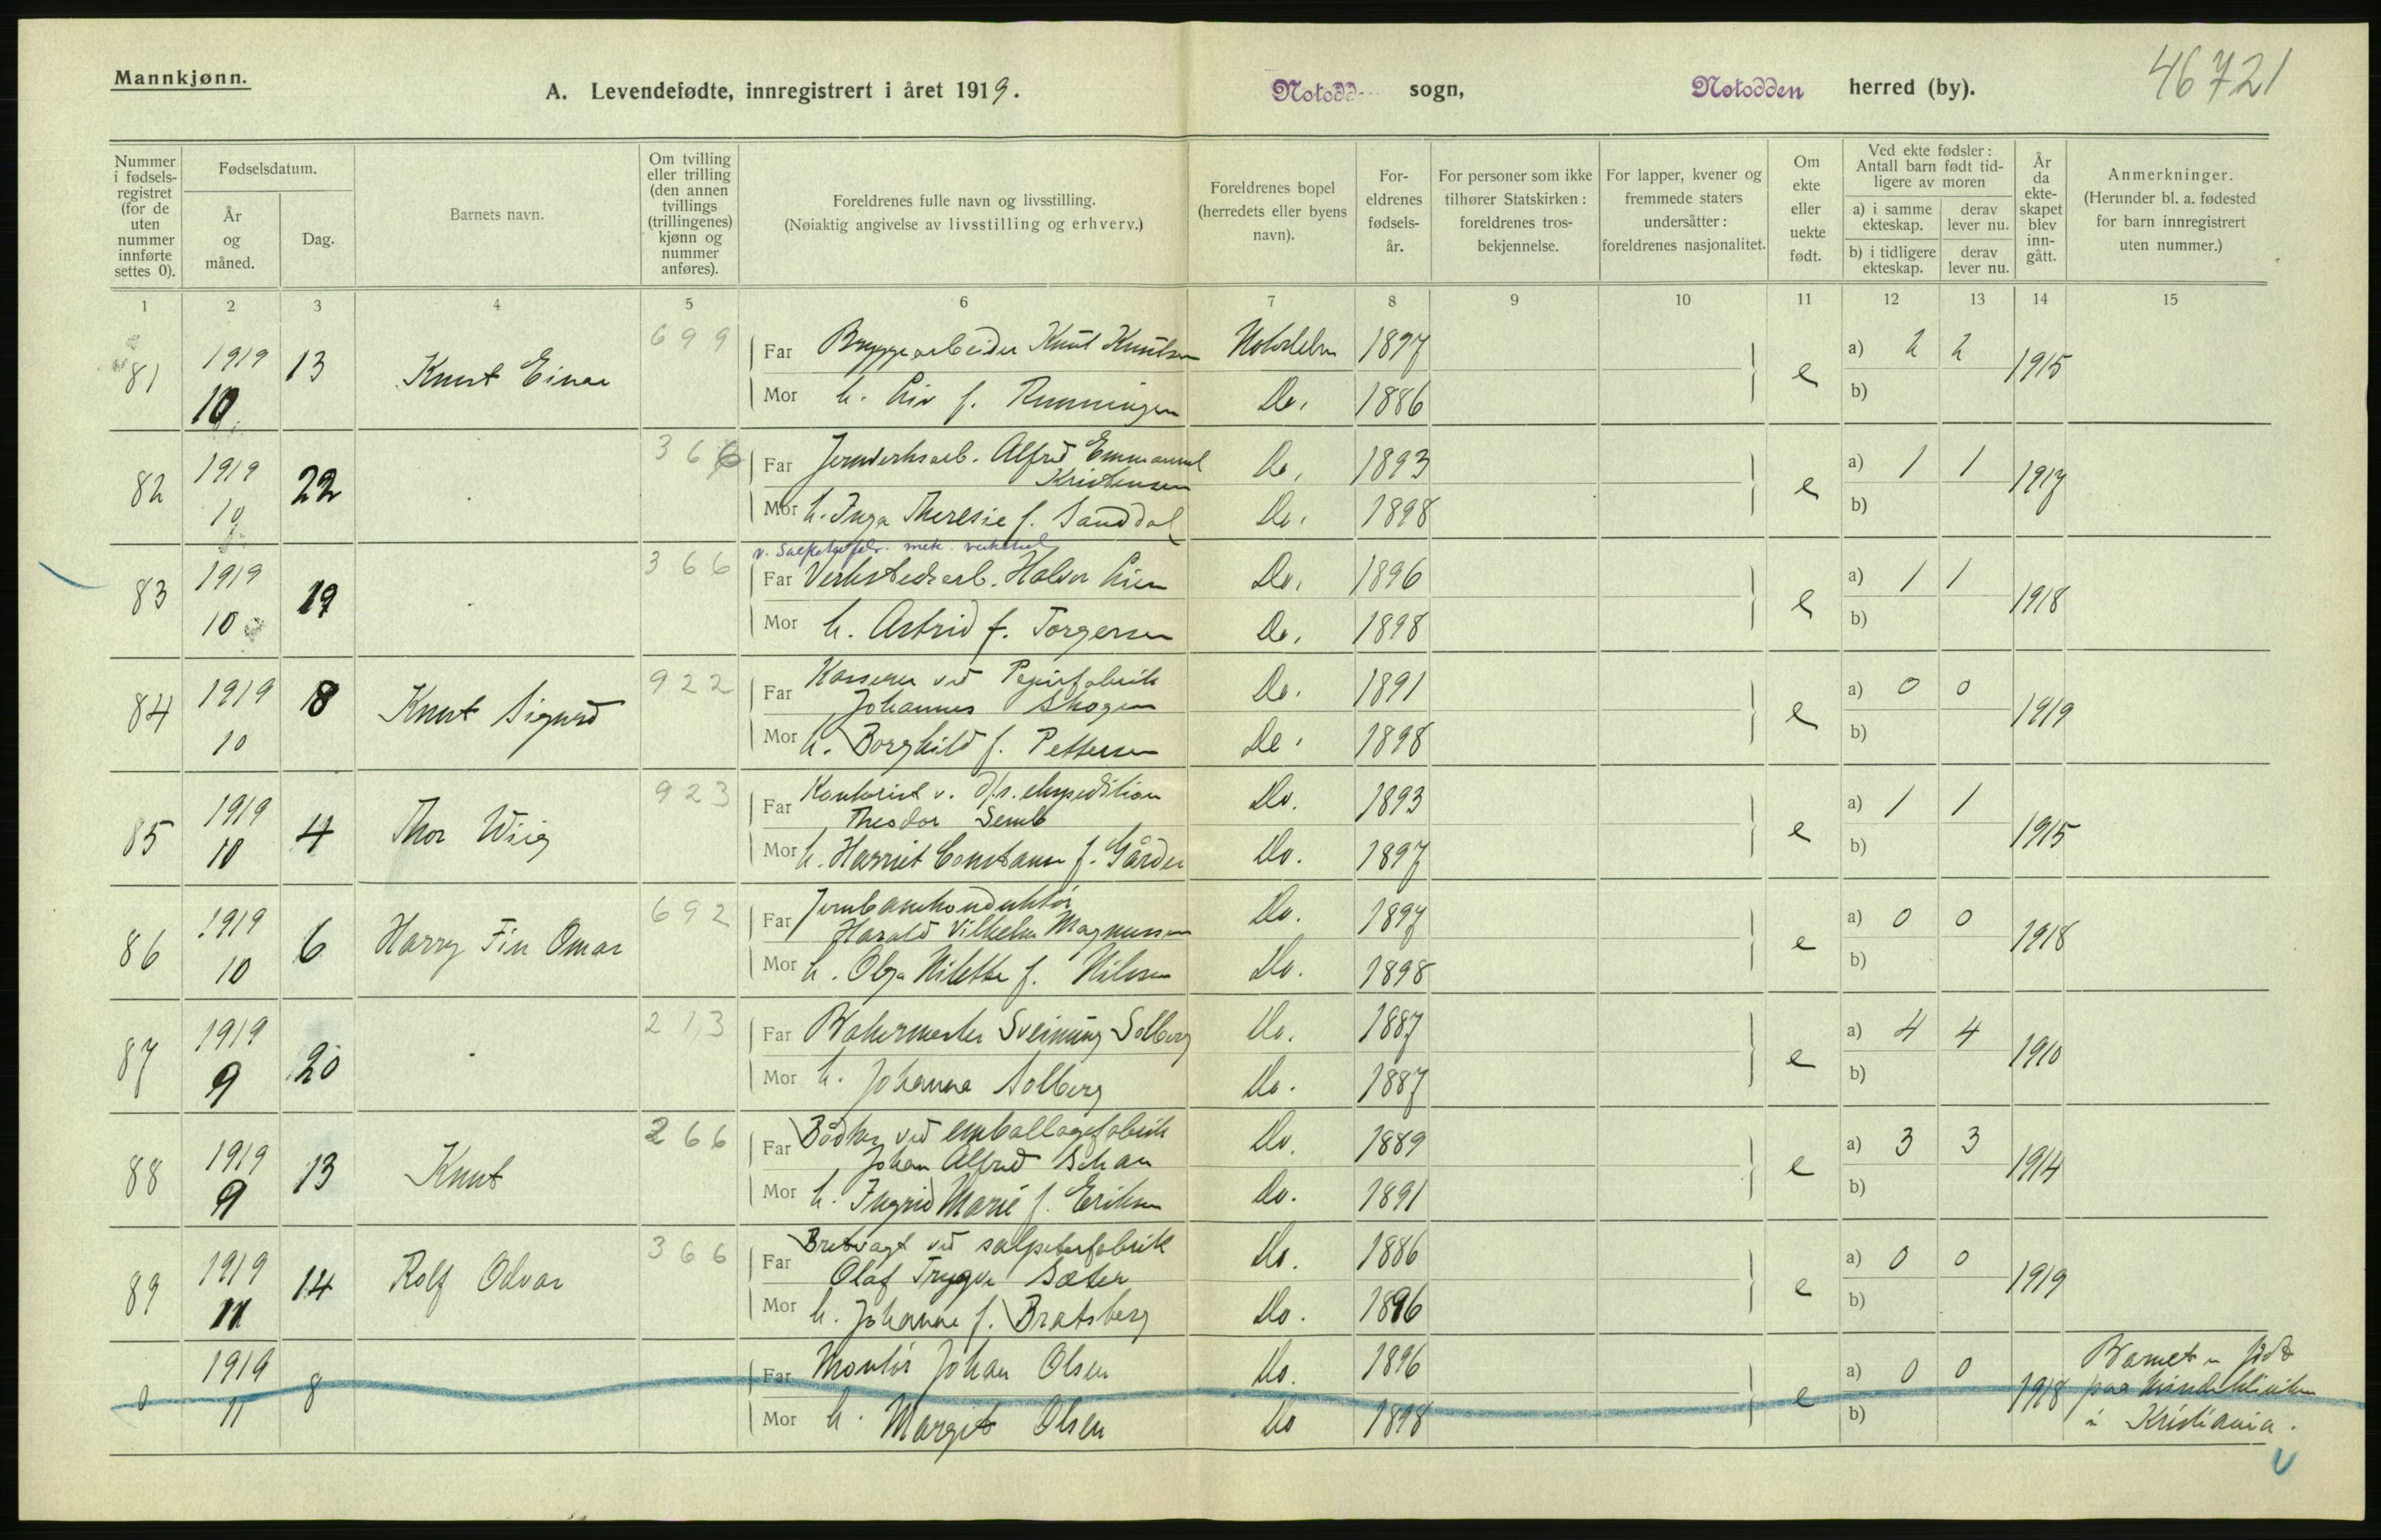 Mannkjønn.
A. Levendefødte, innregistrert i året 1919.
Notodd sogn,
Notodden herred (by).
46721
Nummer i fødsels-registret (for de uten nummer innførte settes 0).
Fødselsdatum.
År og måned.
Dag.
Barnets navn.
Om tvilling eller trilling (den annen tvillings (trillingenes) kjønn og nummer anføres).
Foreldrenes fulle navn og livsstilling.
(Nøiaktig angivelse av livsstilling og erhverv.)
Foreldrenes bopel (herredets eller byens navn).
For-eldrenes fødsels-år.
For personer som ikke tilhører Statskirken: foreldrenes tros-bekjennelse.
For lapper, kvener og fremmede staters undersåtter: foreldrenes nasjonalitet.
Om ekte eller uekte født.
Ved ekte fødsler: Antall barn født tid-ligere av moren
a) i samme ekteskap.
derav lever nu.
b) i tidligere ekteskap.
derav lever nu.
År da ekte-skapet blev inn-gått.
Anmerkninger.
(Herunder bl. a. fødested for barn innregistrert uten nummer.)
1 2 3 4 5 6 7 8 9 10 11 12 13 14 15
81 1919 10 13 Knut Einar 699
Far Bryggearbeider Knut Knutsen 1897 e a) 2 2 1915
Mor h. Liv f. Rmningen Do. 1886 b)
82 1919 10 22 366
Far Jernverksarb. Alfred Emmanuel Kristensen Do. 1893 e a) 1 1 1917
Mor h. Inga Theresie f. Sanddal Do. 1898 b)
83 1919 10 19 366
v. Salpeterfabr. mek. verksted
Far Verkstedsarb. Halvor Lien Do. 1896 e a) 1 1 1918
Mor h. Astrid f. Torgersen Do. 1898 b)
84 1919 10 18 Knut Sigurd 922
Far Kasserer ved Papirfabrik Johannes Skogen Do. 1891 e a) 0 0 1919
Mor h. Borghild f. Pettersen Do. 1898 b)
85 1919 10 4 Thor Wiig 923
Far Kontorist v. d/s. ekspedition Theodor Semb Do. 1893 e a) 1 1 1915
Mor h. Harriet Constanse f. Gårder Do. 1897 b)
86 1919 10 6 Harry Fin Omar 692
Far Jernbanekonduktør Harald Vilhelm Magnussen Do. 1897 e a) 0 0 1918
Mor h. Olga Nilette f. Nilsen Do. 1898 b)
87 1919 9 20 213
Far Bakermester Sveinung Solberg Do. 1887 e a) 4 4 1910
Mor h. Johanna Solberg Do. 1887 b)
88 1919 9 13 Knut 266
Far Bødker ved emballagefabrik Johan Alfred Do. 1889 e a) 3 3 1914
Mor h. Ingrid Marie f. Eriksen Do. 1891 b)
89 1919 11 14 Rolf Odvar 366
Far ved salpeterfabrik Olaf Trygve Sæter Do. 1886 e a) 0 0 1919
Mor h. Johanne f. Bratsberg Do. 1896 b)
0 1919 11 8
Far Montør Johan Olsen Do. 1896 e a) 0 0 1918 Barnet er født paa Kvindeklinikken i Kristiania.
Mor h. Margit Olsen Do 1898 b)